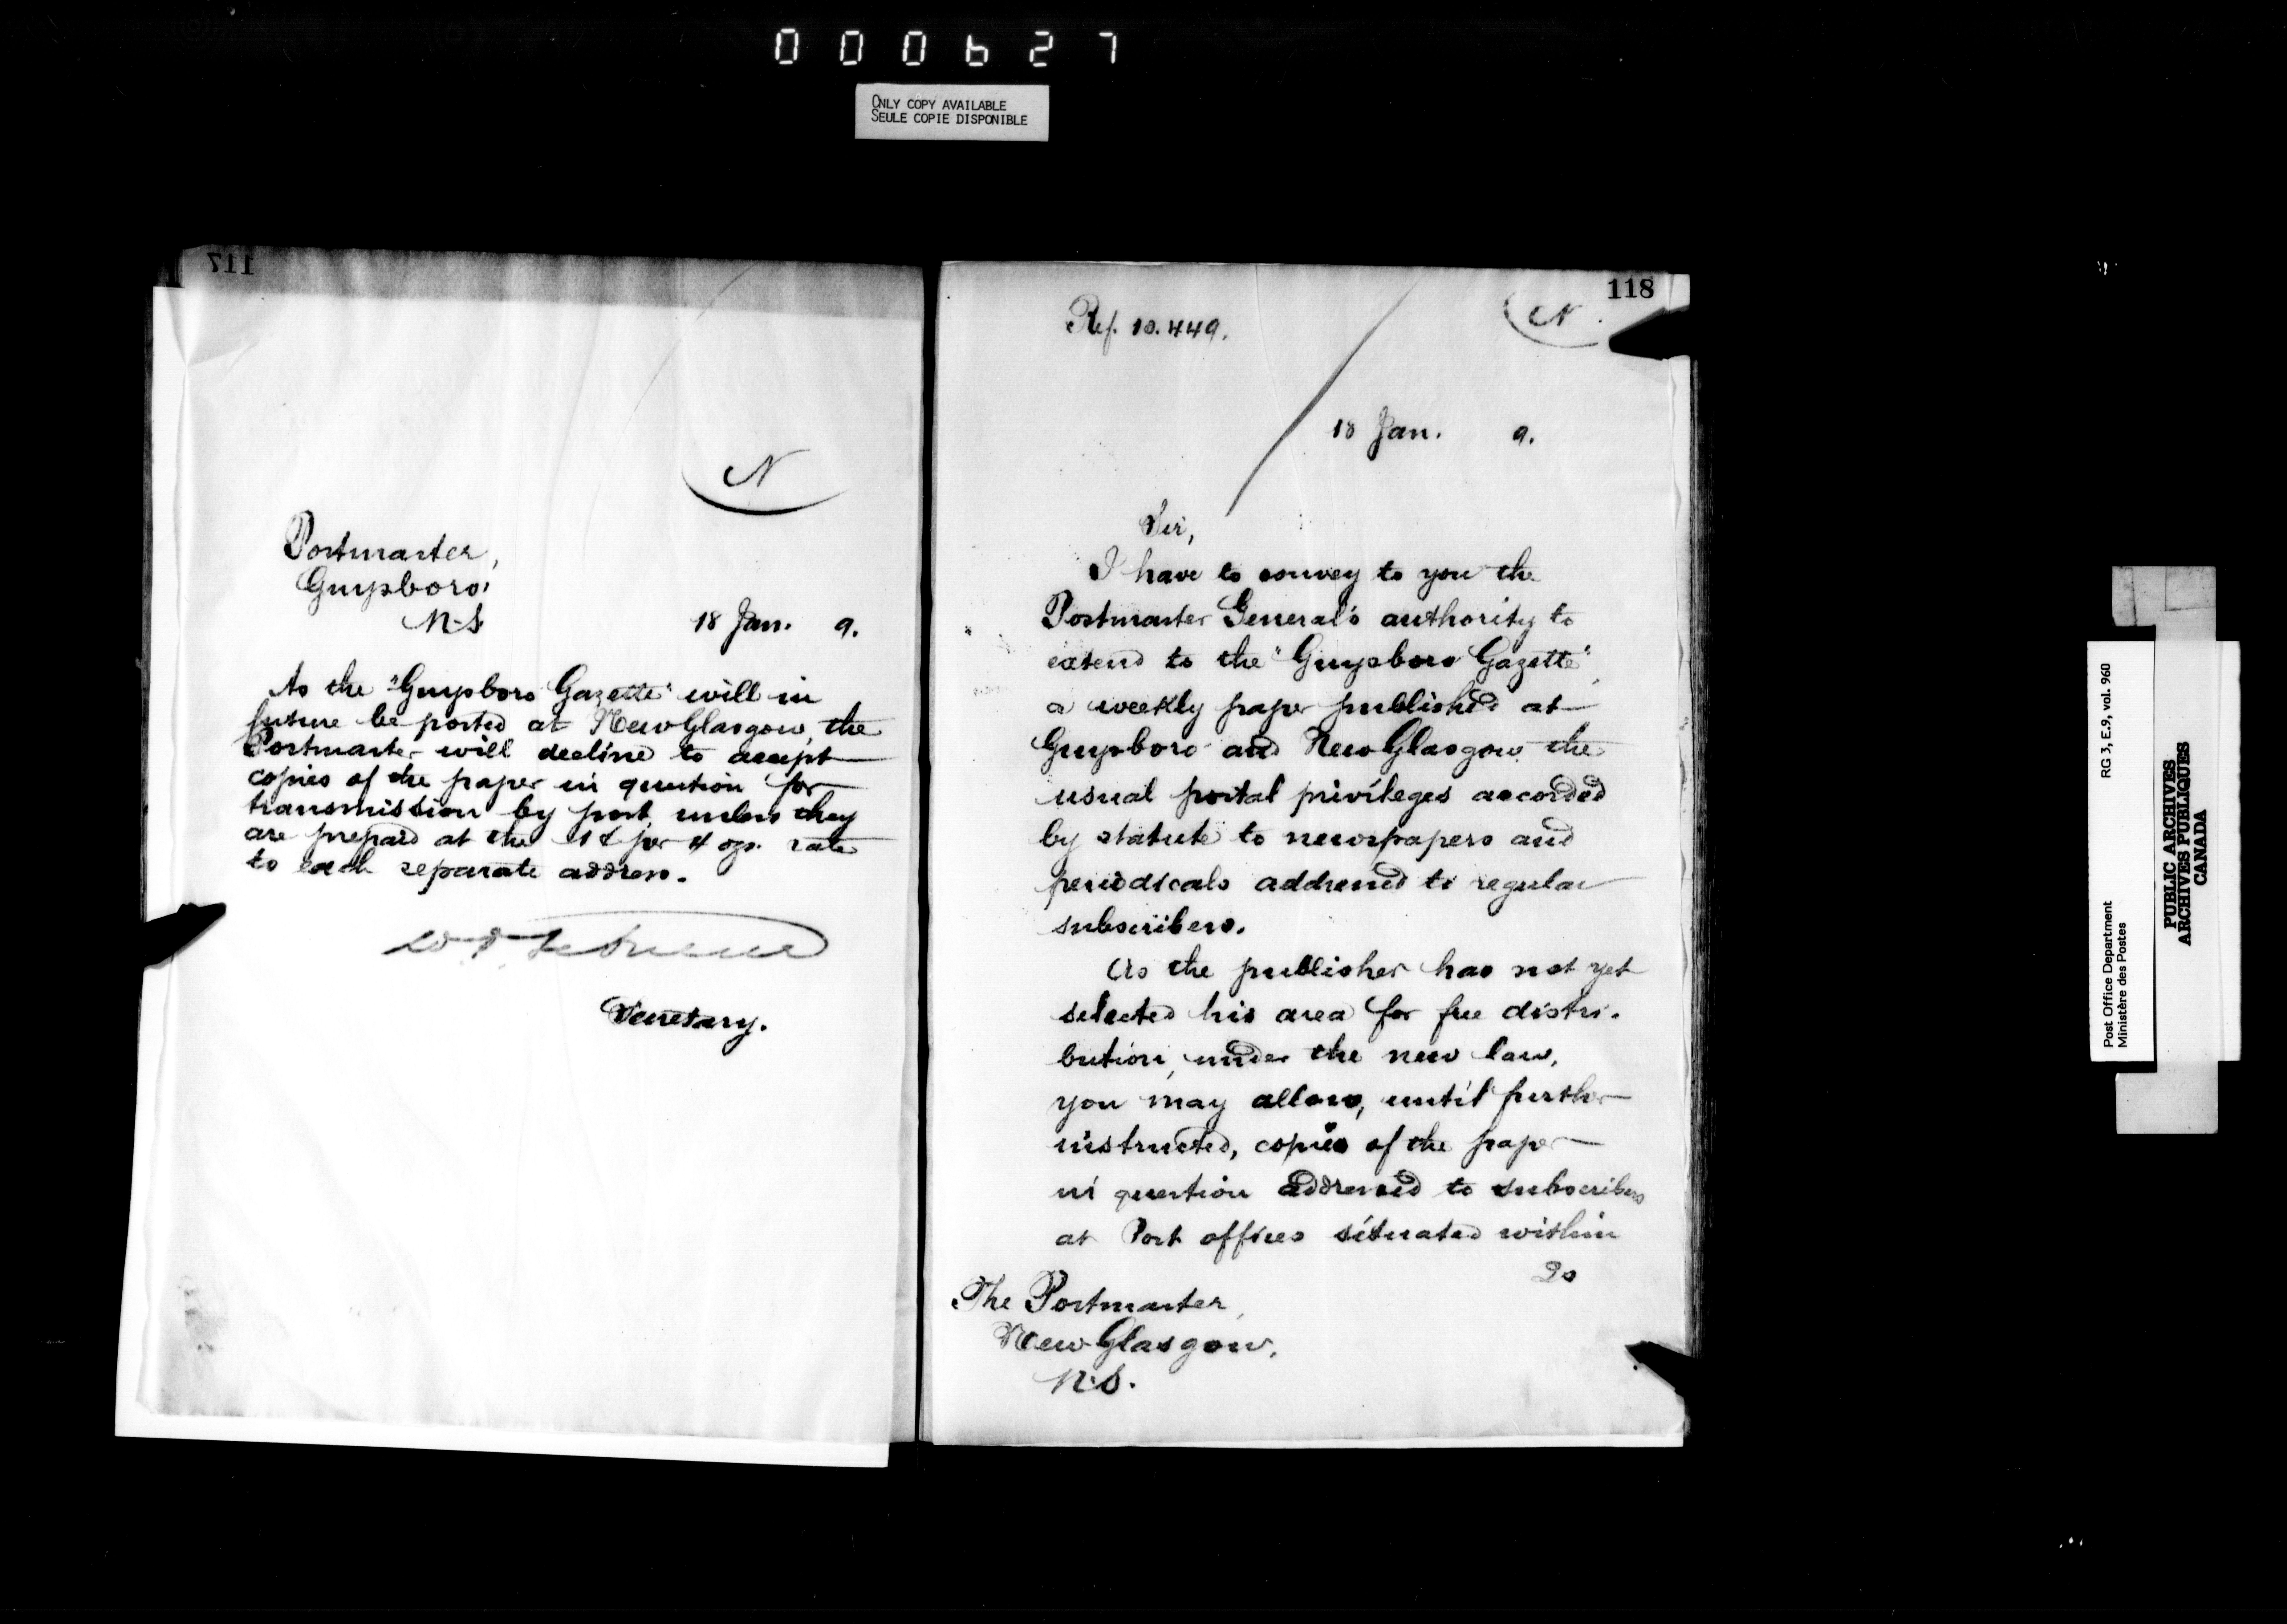 000627
ONLY COPY AVAILABLE
SEULE COPIE DISPONIBLE
117
N
Postmaster,
Guysboro'
N.S.
18 Jan. 9.
As the "Guysboro Gazette" will in
future be posted at New Glasgow, the
Postmaster will decline to accept
copies of the paper in question for
transmission by post, unless they
are prepaid at the 1¢ per 4 ozs. rate
to each separate address.
Secretary.
118
N.
Ref. 10.449.
18 Jan. 9.
Sir,
I have to convey to you the
Postmaster General's authority to
extend to the "Guysboro Gazette",
a weekly paper published at
Guysboro and New Glasgow, the
usual postal privileges accorded
by statute to newspapers and
periodicals addressed to regular
subscribers.
As the publisher has not yet
selected his area for free distri-
bution, under the new law,
you may allow, until further
instructed, copies of the paper
in question addressed to subscribers
at Post offices situated within
20
The Postmaster,
New Glasgow,
N.S.
Post Office Department RG 3, E.9, vol. 960
Ministère des Postes
PUBLIC ARCHIVES
ARCHIVES PUBLIQUES
CANADA